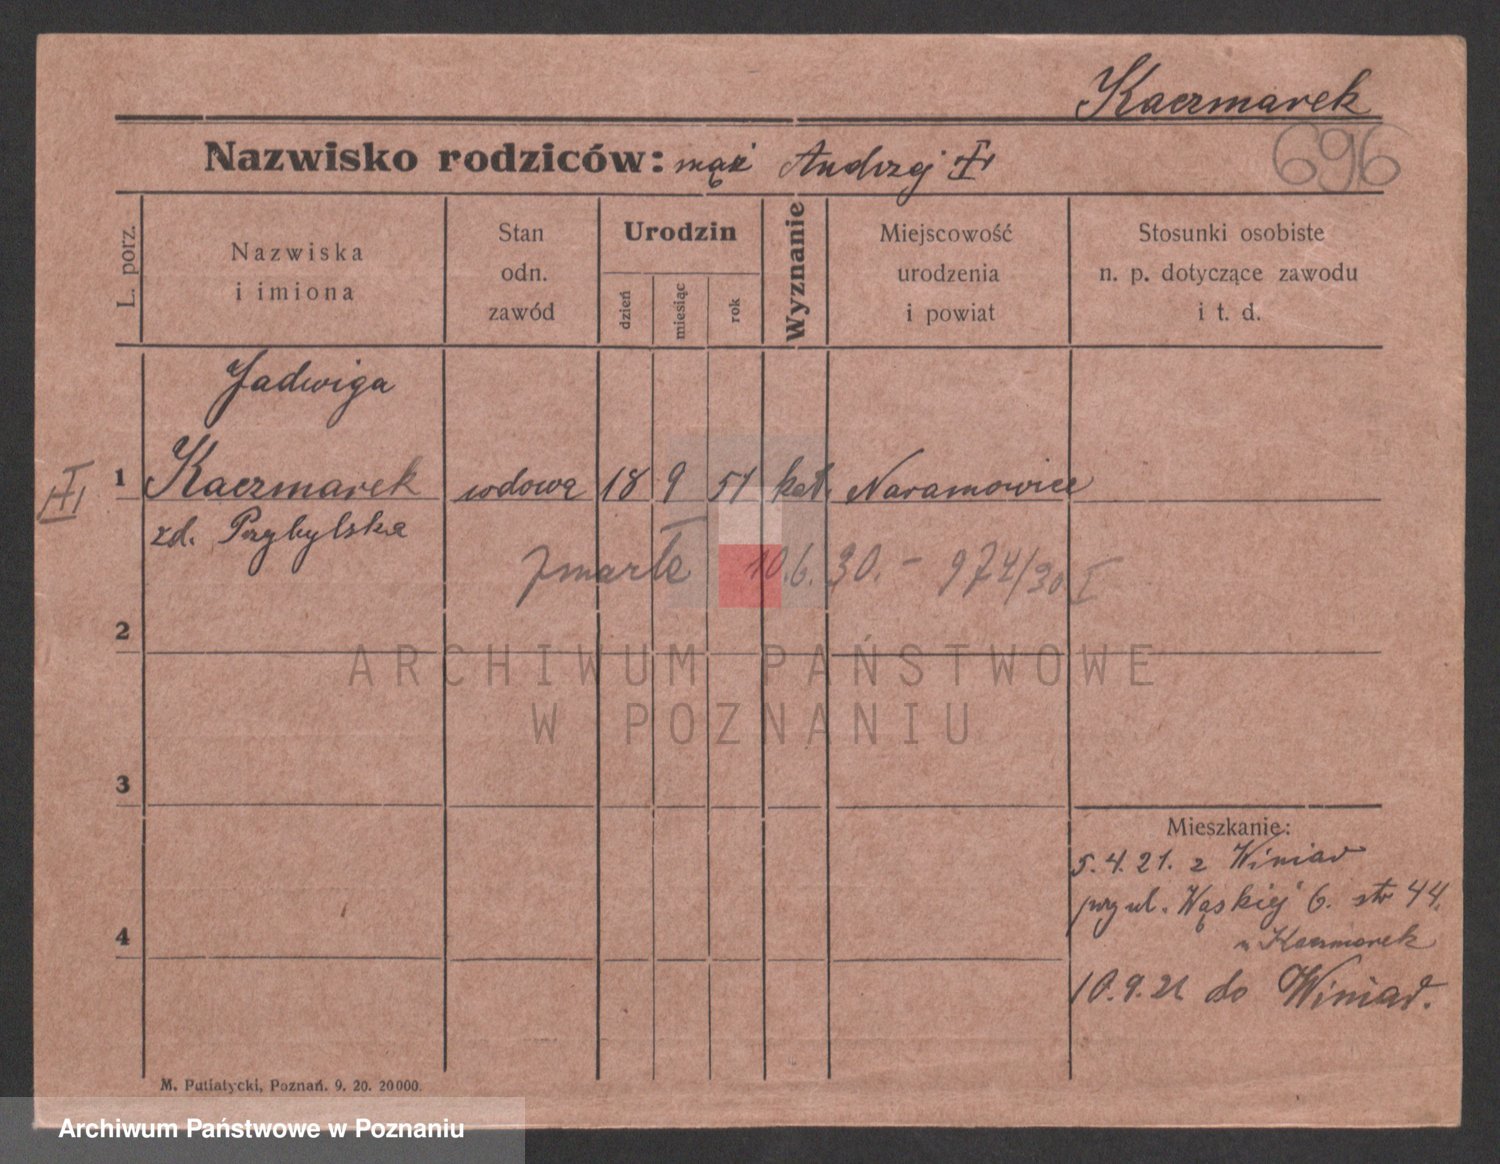 Kaczmarek
696
Nazwisko rodziców: mąż Andrzej
L. porz.
Nazwiska
i imiona
Stan
odn.
zawód
Urodzin
dzień
miesiąc
rok
Wyznanie
Miejscowość
urodzenia
i powiat
Stosunki osobiste
n. p. dotyczące zawodu
i t. d.
Jadwiga
1 Kaczmarek wdowa 18 9 51 kat. Naramowice
zd. Przybylska
zmarła 10.6.30. – 974/30 I
2
ARCHIWUM PAŃSTWOWE
W POZNANIU
3
Mieszkanie:
5.4.21. z Winiar
przy ul. Wąskiej 6. str 44.
u Kaczmarek
4
10.9.21 do Winiar.
M. Putiatycki, Poznań. 9. 20. 20000.
Archiwum Państwowe w Poznaniu